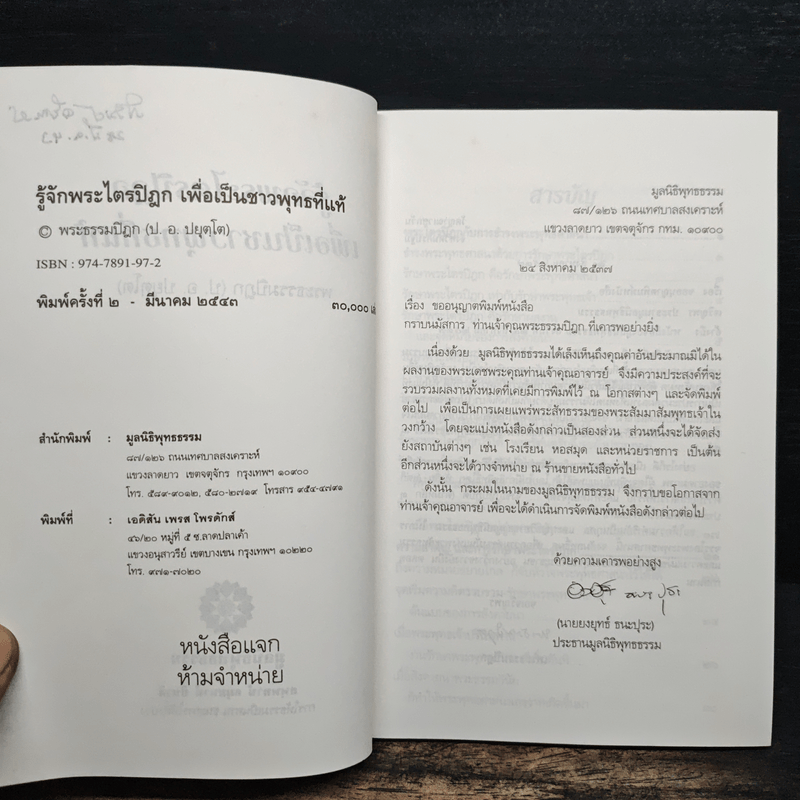 รู้จักพระไตรปิฎก เพื่อเป็นชาวพุทธที่แท้
© พระธรรมปิฎก (ป. อ. ปยุตฺโต)
ISBN : 974-7891-97-2
พิมพ์ครั้งที่ ๒ - มีนาคม ๒๕๔๓ ๓๐,๐๐๐
สำนักพิมพ์ : มูลนิธิพุทธธรรม
๘๗/๑๒๖ ถนนเทศบาลสงเคราะห์
แขวงลาดยาว เขตจตุจักร กรุงเทพฯ ๑๐๙๐๐
โทร. ๕๘๙-๙๐๑๒, ๕๘๐-๒๗๑๙ โทรสาร ๙๕๔-๔๗๙๑
พิมพ์ที่ : เอดิสัน เพรส โพรดักส์
๔๖/๒๐ หมู่ที่ ๕ ซ.ลาดปลาเค้า
แขวงอนุสาวรีย์ เขตบางเขน กรุงเทพฯ ๑๐๒๒๐
โทร. ๙๗๑-๗๐๒๐
หนังสือแจก
ห้ามจำหน่าย
มูลนิธิพุทธธรรม
๘๗/๑๒๖ ถนนเทศบาลสงเคราะห์
แขวงลาดยาว เขตจตุจักร กทม. ๑๐๙๐๐
๒๔ สิงหาคม ๒๕๓๗
เรื่อง ขออนุญาตพิมพ์หนังสือ
กราบนมัสการ ท่านเจ้าคุณพระธรรมปิฎก ที่เคารพอย่างยิ่ง
เนื่องด้วย มูลนิธิพุทธธรรมได้เล็งเห็นถึงคุณค่าอันประมาณมิได้ใน
ผลงานของพระเดชพระคุณท่านเจ้าคุณอาจารย์ จึงมีความประสงค์ที่จะ
รวบรวมผลงานทั้งหมดที่เคยมีการพิมพ์ไว้ ณ โอกาสต่างๆ และจัดพิมพ์
ต่อไป เพื่อเป็นการเผยแพร่พระสัทธรรมของพระสัมมาสัมพุทธเจ้าใน
วงกว้าง โดยจะแบ่งหนังสือดังกล่าวเป็นสองส่วน ส่วนหนึ่งจะได้จัดส่ง
ยังสถาบันต่างๆ เช่น โรงเรียน หอสมุด และหน่วยราชการ เป็นต้น
อีกส่วนหนึ่งจะได้วางจำหน่าย ณ ร้านขายหนังสือทั่วไป
ดังนั้น กระผมในนามของมูลนิธิพุทธธรรม จึงกราบขอโอกาสจาก
ท่านเจ้าคุณอาจารย์ เพื่อจะได้ดำเนินการจัดพิมพ์หนังสือดังกล่าวต่อไป
ด้วยความเคารพอย่างสูง
(นายยงยุทธ์ ธนะปุระ)
ประธานมูลนิธิพุทธธรรม